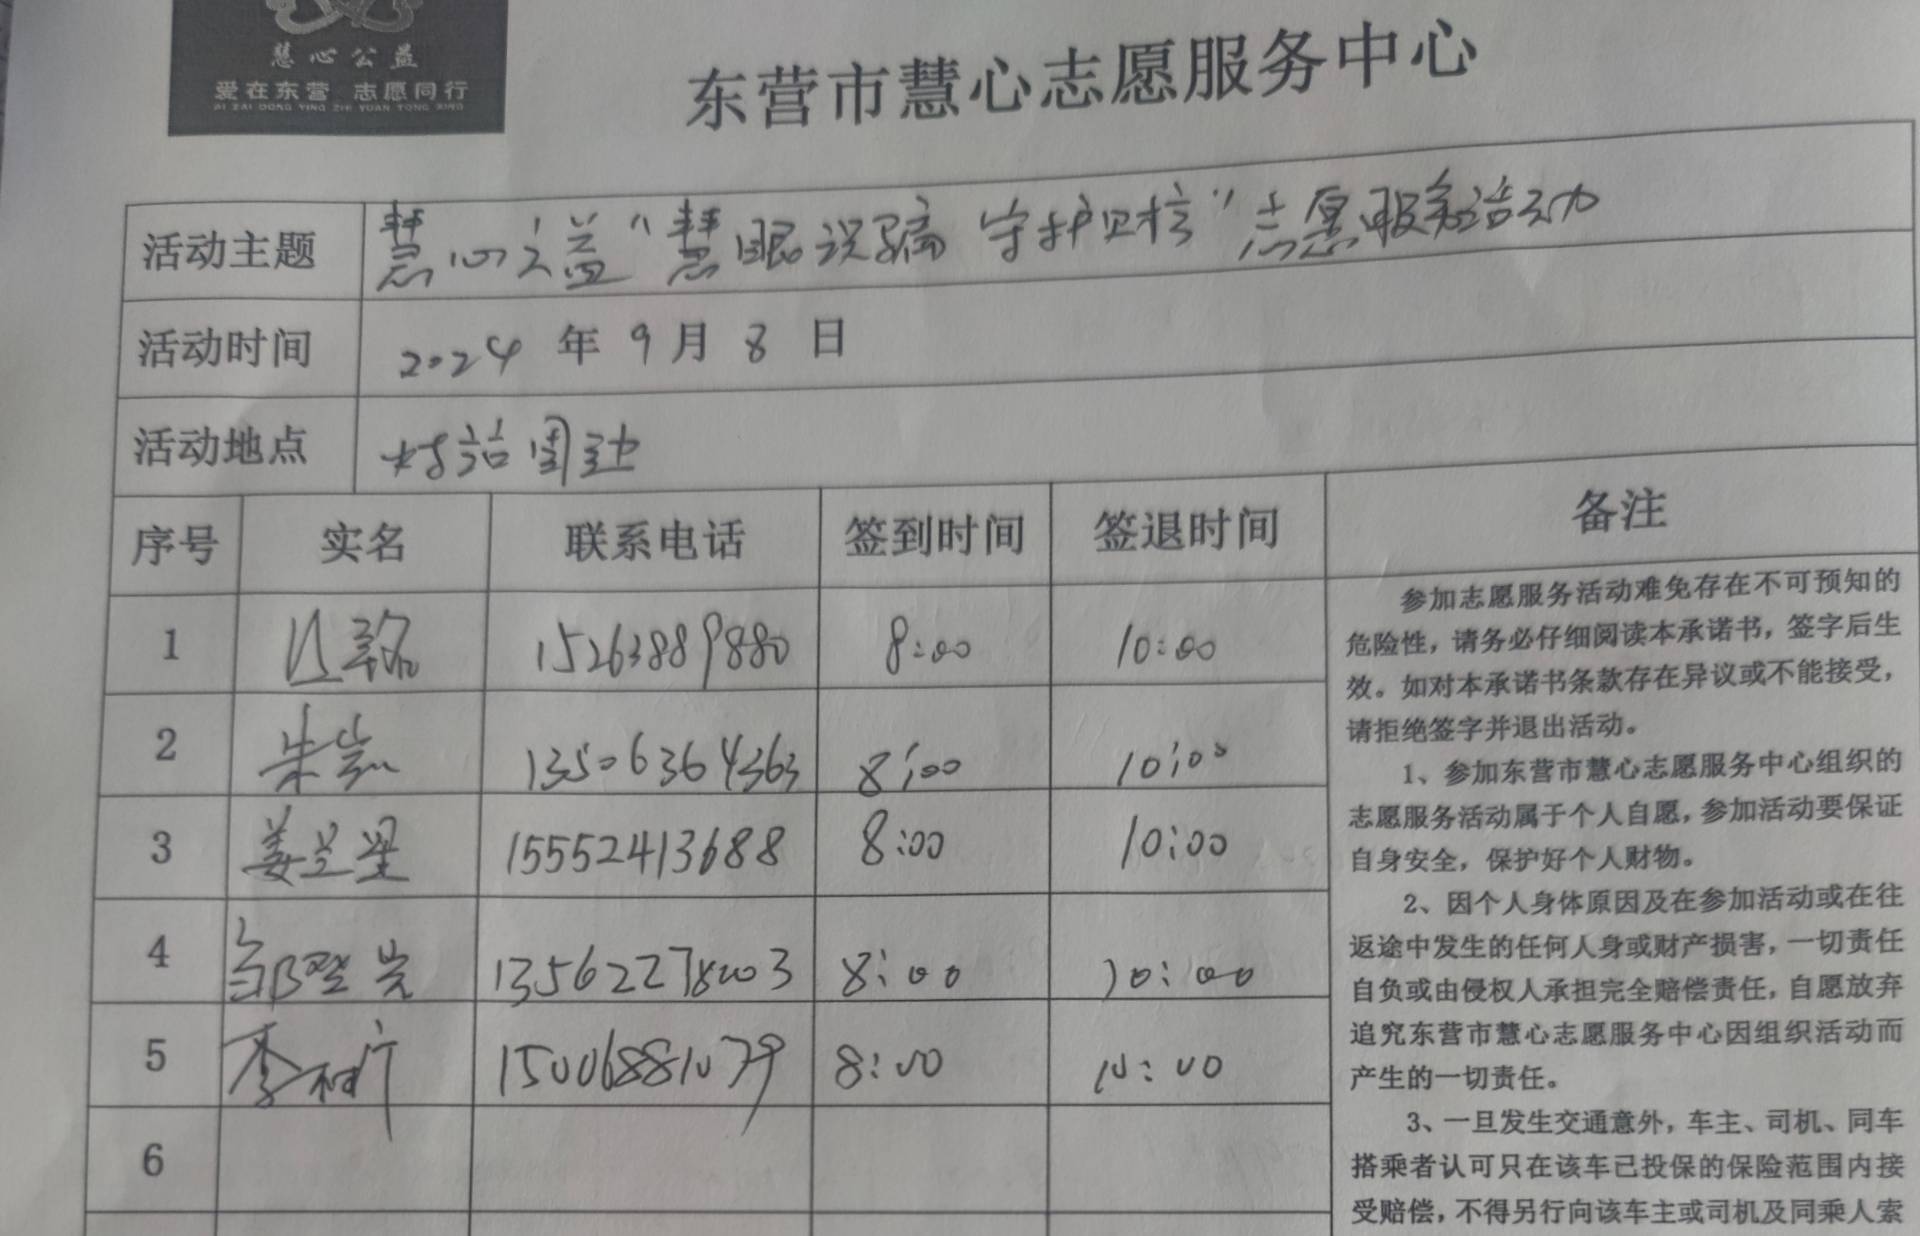 慧心公益
爱在东营 志愿同行
AI ZAI DONG YING ZHI YUAN TONG XING
东营市慧心志愿服务中心
活动主题 慧心公益“慧眼识骗 守护口袋”志愿服务活动
活动时间 2024 年 9 月 8 日
活动地点 村站周边
序号 实名 联系电话 签到时间 签退时间 备注
1 15263889880 8:00 10:00
2 朱 13506364363 8:00 10:00
3 姜 15552413688 8:00 10:00
4 13562278003 8:00 10:00
5 李 15006881079 8:00 10:00
6
参加志愿服务活动难免存在不可预知的
危险性，请务必仔细阅读本承诺书，签字后生
效。如对本承诺书条款存在异议或不能接受，
请拒绝签字并退出活动。
1、参加东营市慧心志愿服务中心组织的
志愿服务活动属于个人自愿，参加活动要保证
自身安全，保护好个人财物。
2、因个人身体原因及在参加活动或在往
返途中发生的任何人身或财产损害，一切责任
自负或由侵权人承担完全赔偿责任，自愿放弃
追究东营市慧心志愿服务中心因组织活动而
产生的一切责任。
3、一旦发生交通意外，车主、司机、同车
搭乘者认可只在该车已投保的保险范围内接
受赔偿，不得另行向该车主或司机及同乘人索